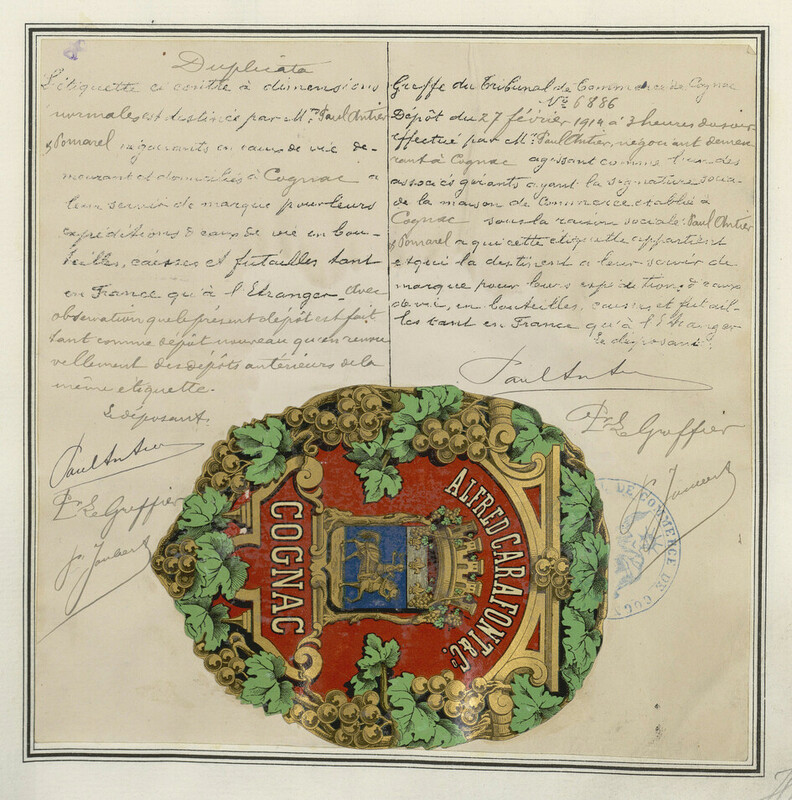 Duplicata
L'étiquette ci contre à dimensions
normales est destinée par Mrs Paul Antier
& Pomarel négociants en eaux de vie de-
meurant et domiciliés à Cognac à
leur servir de marque pour leurs
expéditions d'eaux de vie en bou-
teilles, caisses et futailles tant
en France qu'à l'Etranger. avec
observation que le présent dépôt est fait
tant comme dépôt nouveau qu'en renou
vellement des dépôts antérieurs de la
même etiquette.
Le déposant.
Paul Antier
Pr Le Greffier
Jn Joubert
Greffe du Tribunal de Commerce de Cognac
No 6886
Dépôt du 27 février 1914 à 3 heures du soir
effectué par Mr Paul Antier, négociant demeu
rant à Cognac agissant comme l'un des
associés gérants ayant la signature socia-
le de la maison de Commerce etablie à
Cognac sous la raison sociale: Paul Antier
& Pomarel à qui cette étiquette appartient
et qui la destinent à leur servir de
marque pour leurs expéditions d'eaux
de vie, en bouteilles, caisses et futail-
les tant en France qu'à l'Etranger
Le déposant.
Paul Antier
Pr Le Greffier
Joubert
DE COMMERCE DE COGN
ALFRED CARAFONT & Co.
COGNAC